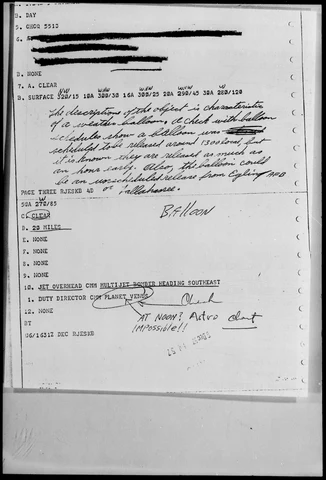 D. DAY
5. CHOQ 5513
6.
B. NONE
7. A. CLEAR
NW WNW WNW WNW W
B. SURFACE 320/15 10A 300/30 16A 300/25 20A 290/45 30A 280/120
The descriptions of the object is characteristic
of a weather balloon. A check with balloon
schedules show a balloon was
scheduled to be released around 1300 local, but
it is known they are released as much as
an hour early. Also, the balloon could
be an unscheduled release from Eglin AFB
PAGE THREE RJESKB 48 or Tallahassee.
W
50A 270/85
C. CLEAR
BAllOON
D. 20 MILES
E. NONE
F. NONE
8. NONE
9. NONE
10. JET OVERHEAD CMM MULTIJET BOMBER HEADING SOUTHEAST
1. DUTY DIRECTOR CMM PLANET VENUS
Check
12. NONE
AT NOON? Astro chart
IMPOSSIBLE!!
BT
06/1631Z DEC RJESKB